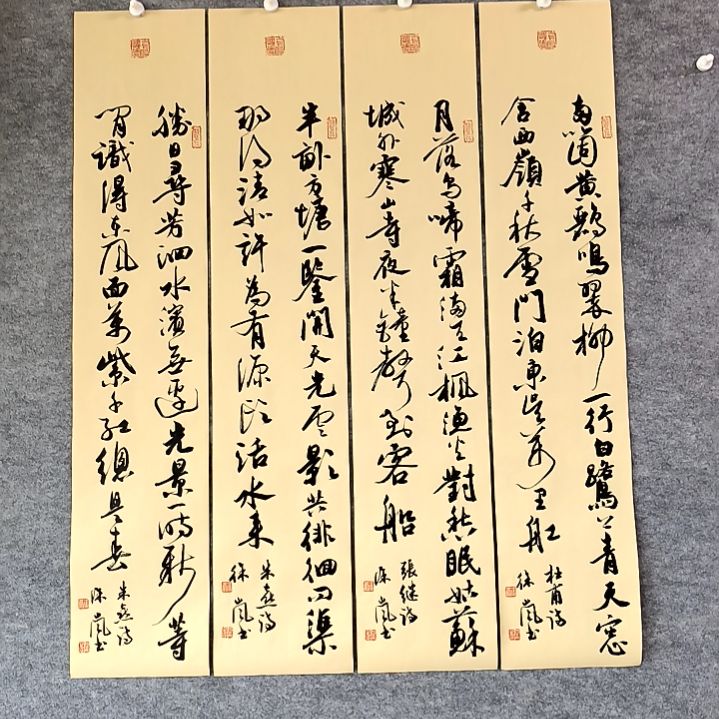 两箇黄鹂鳴翠柳一行白鷺上青天窓
含西嶺千秋雪門泊東吴万里船
杜甫詩
徐嵐书
月落乌啼霜満天江楓漁火對愁眠姑蘇
城外寒山寺夜半鐘聲到客船
張继詩
徐嵐书
半畝方塘一鑒開天光雲影共徘徊问渠
那得清如許為有源头活水来
朱熹詩
徐嵐书
勝日尋芳泗水濱無邊光景一時新等
闲識得东风面萬紫千红總是春
朱熹詩
徐嵐书